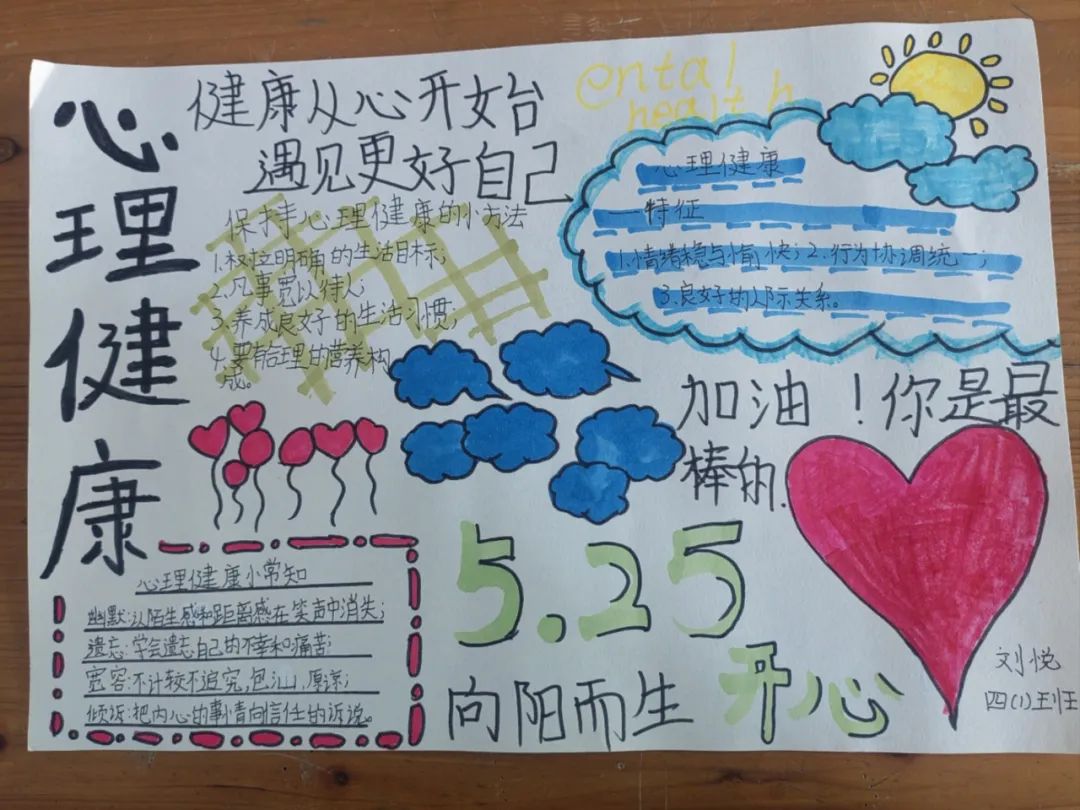 心理健康
健康从心开始
遇见更好自己
ental
health
保持心理健康的小方法
1.树立明确的生活目标;
2.凡事宽以待人;
3.养成良好的生活习惯;
4.要有合理的营养构
成。
心理健康
——特征
1.情绪稳与愉快;2.行为协调统一;
3.良好的人际关系。
加油!你是最
棒的.
5.25
向阳而生
开心
心理健康小常知
幽默:以陌生感和距离感在笑声中消失;
遗忘:学会遗忘自己的不幸和痛苦;
宽容:不计较不追究,包汕,原谅;
倾诉:把内心的事情向信任的诉说。
刘悦
四(1)